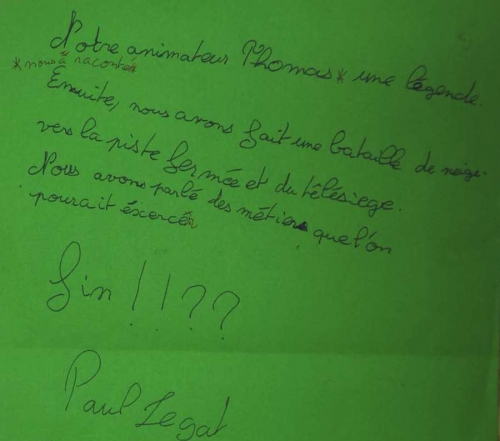 Notre animateur Thomas* une légende.
*nous à racontér
Ensuite, nous avons fait une bataille de neige
vers la piste fermée et du télésiege.
Nous avons parlé des métiers que l'on
pourait éxercér
fin !!??
Paul Legat